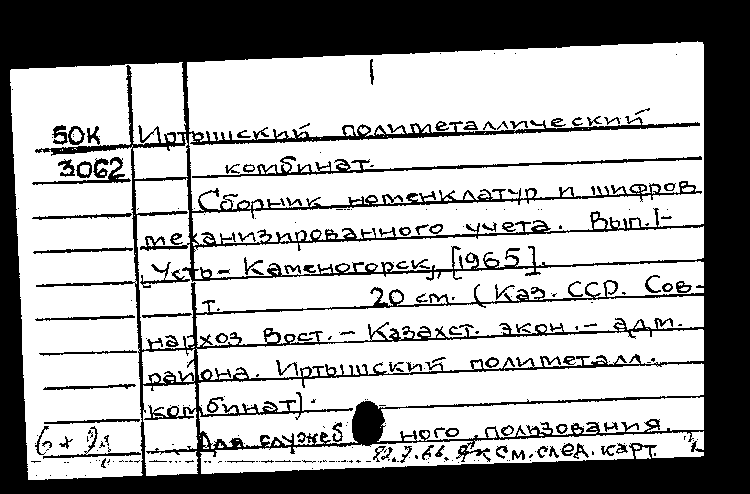 50К Иртышский полиметаллический
3062 комбинат.
Сборник номенклатур и шифров
механизированного учета. Вып. I-
Усть-Каменогорск, [1965].
т. 20 см. (Каз. ССР. Сов-
нархоз Вост.-Казахст. экон.-адм.
района. Иртышский полиметалл.
комбинат).
Для служебного пользования.
см. след. карт